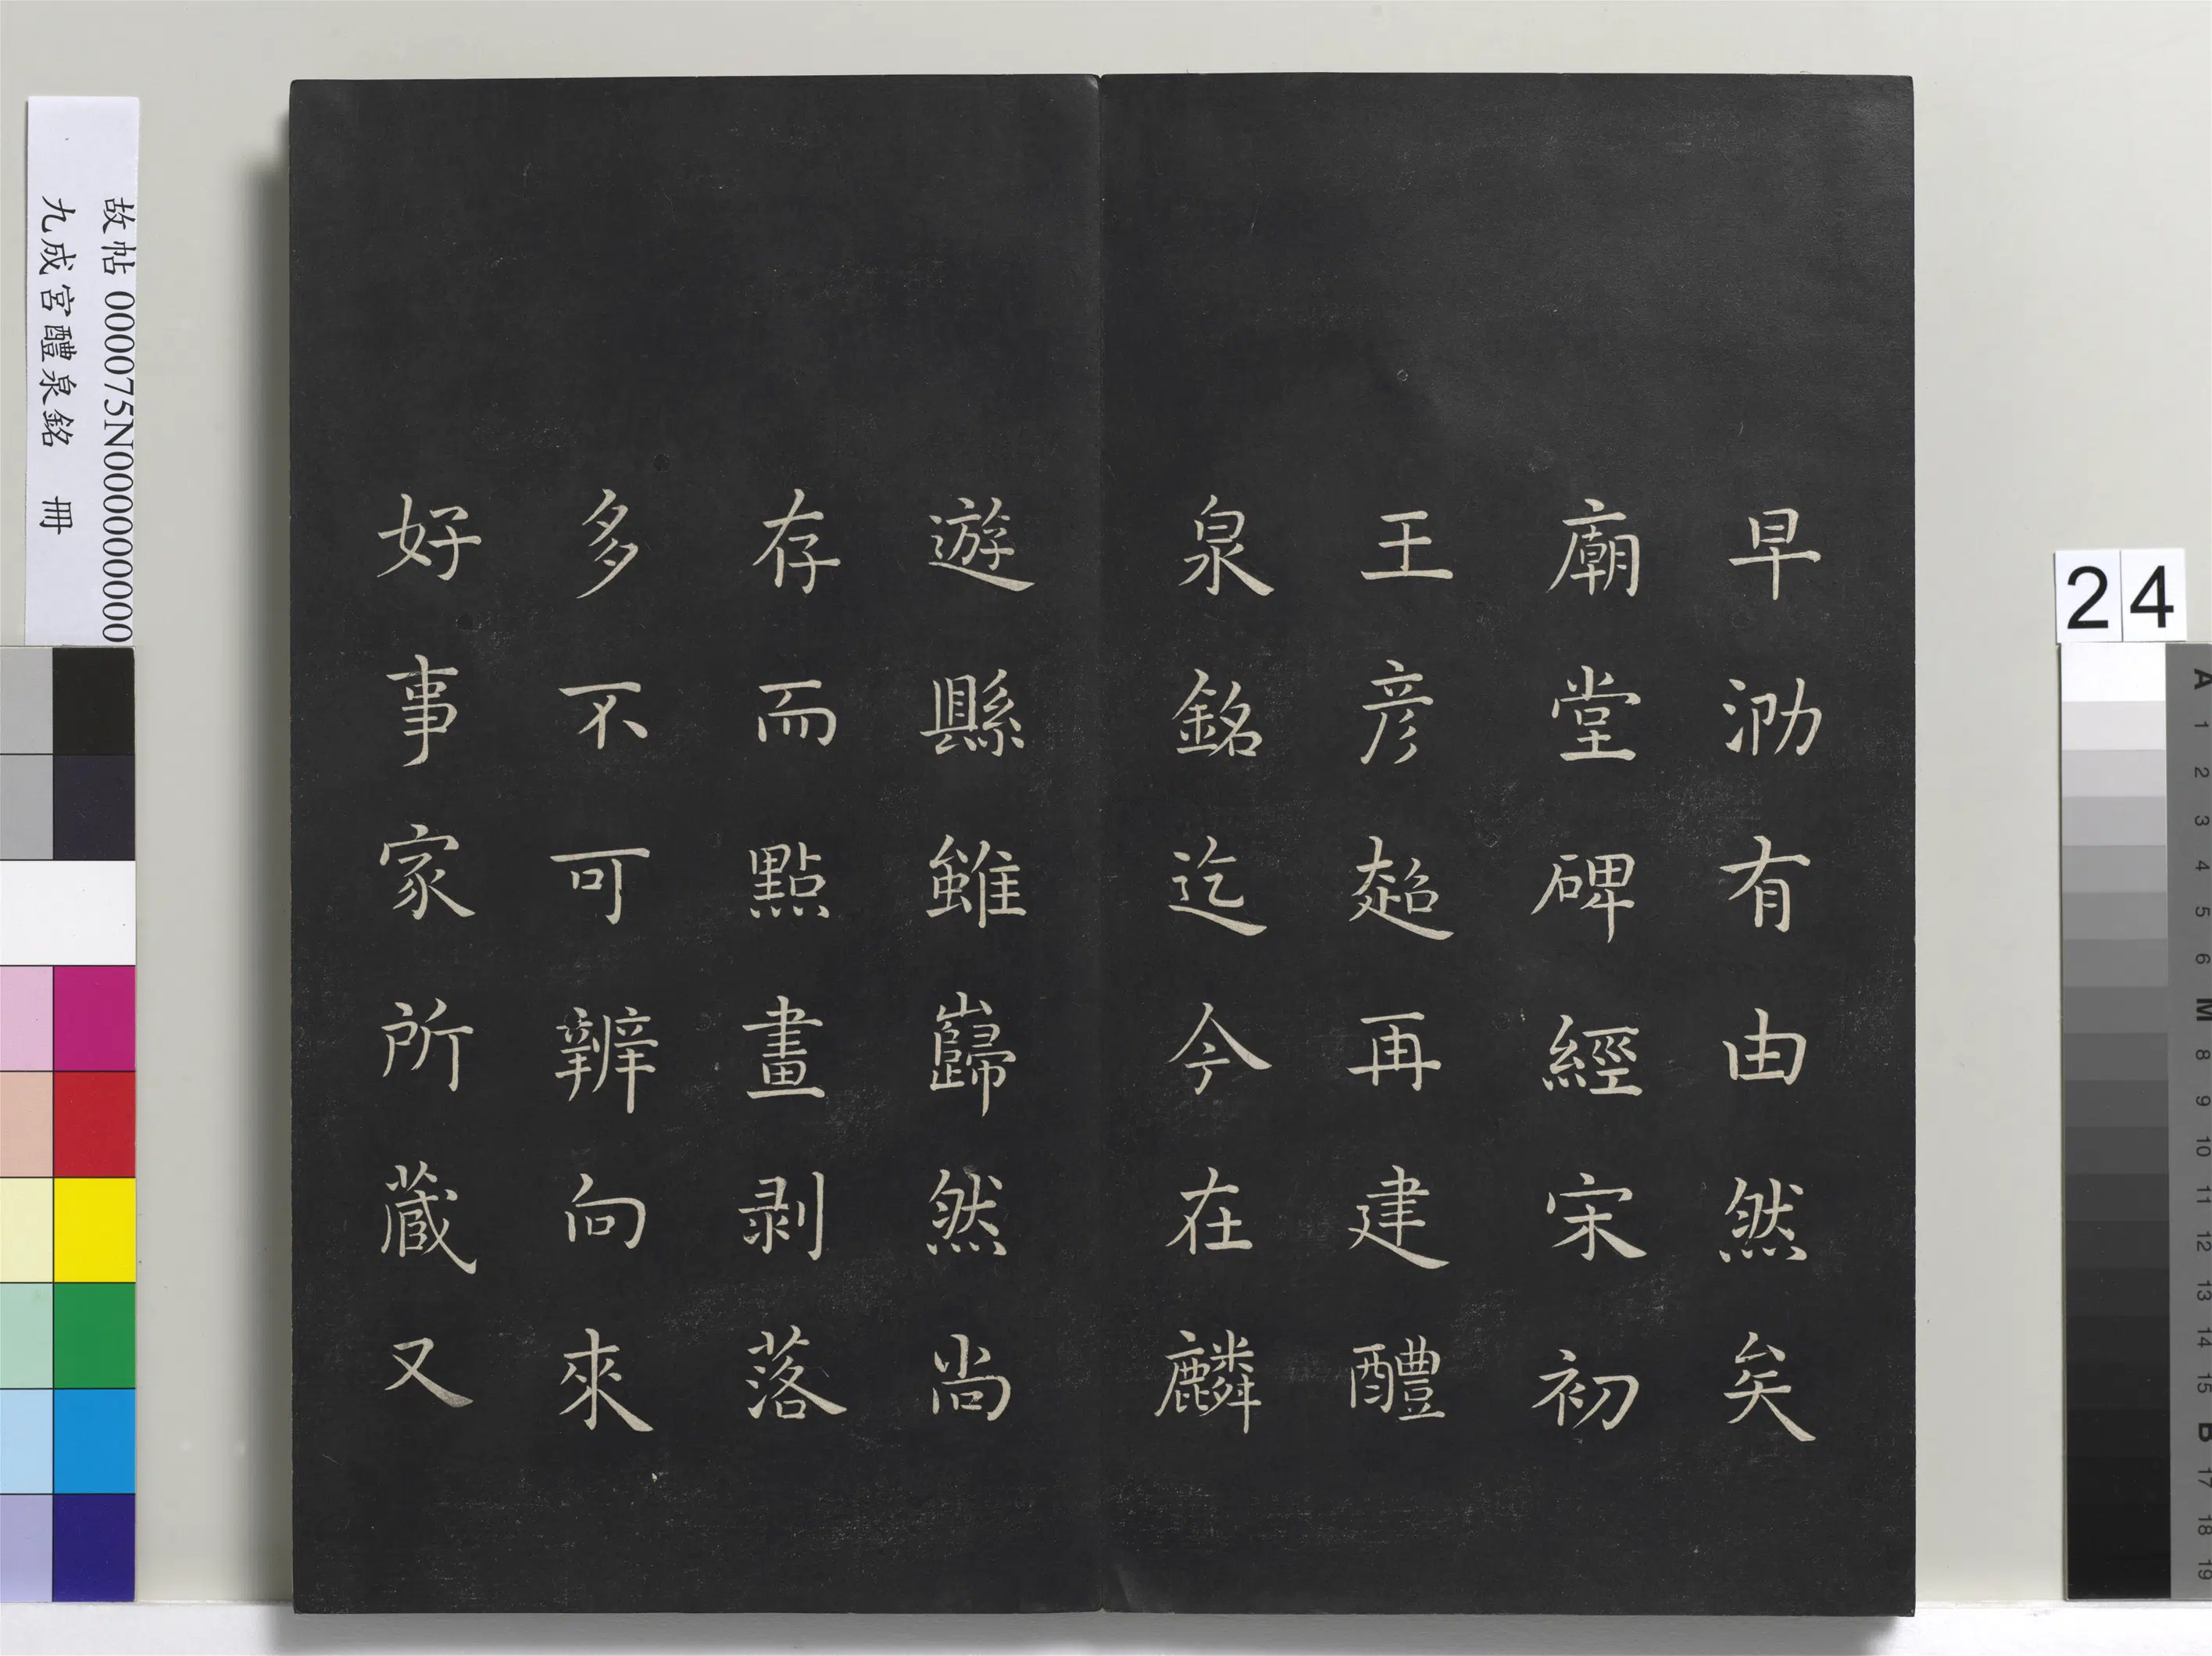 早泐有由然矣
廟堂碑經宋初
王彦超再建醴
泉銘迄今在麟
遊縣雖巋然尚
存而點畫剥落
多不可辨向來
好事家所蔵又
故帖 000075N000000000
九成宮醴泉銘 冊
24
A
1
2
3
4
5
6
M
8
9
10
11
12
13
14
15
B
17
18
19